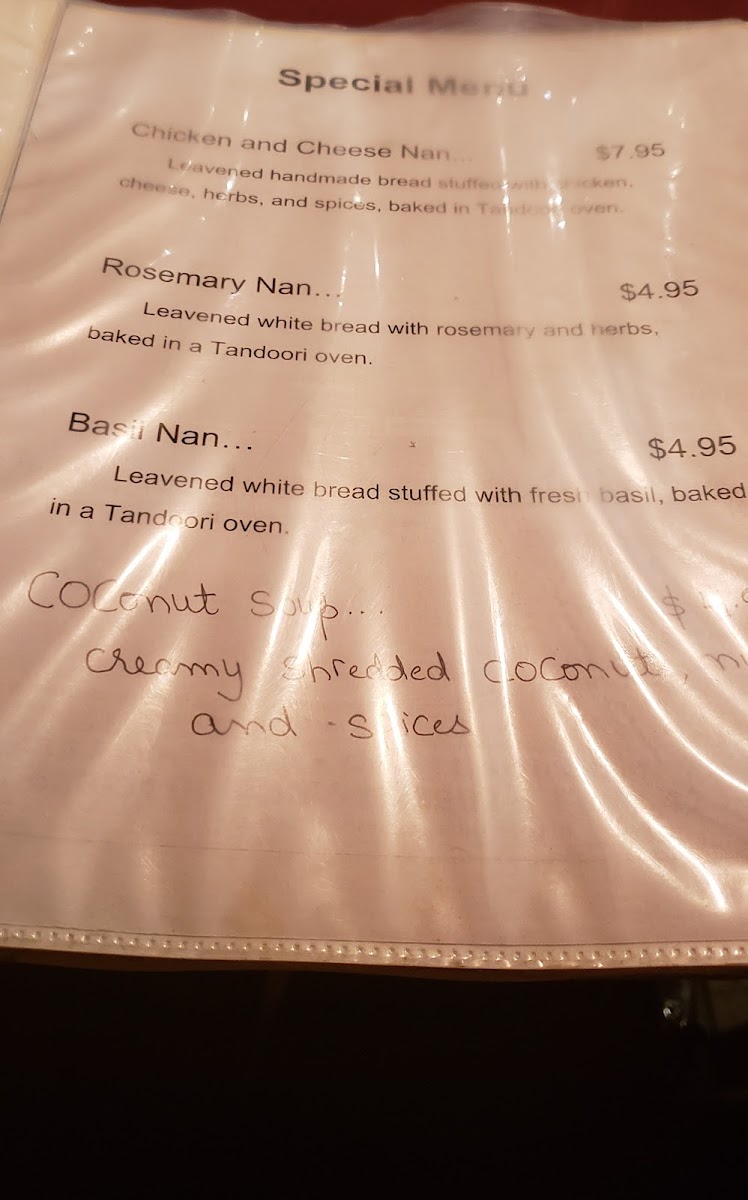 Special Menu
Chicken and Cheese Nan... $7.95
Leavened handmade bread stuffed with chicken,
cheese, herbs, and spices, baked in Tandoori oven.
Rosemary Nan... $4.95
Leavened white bread with rosemary and herbs,
baked in a Tandoori oven.
Basil Nan... $4.95
Leavened white bread stuffed with fresh basil, baked
in a Tandoori oven.
Coconut Soup... $
creamy shredded coconut,
and spices